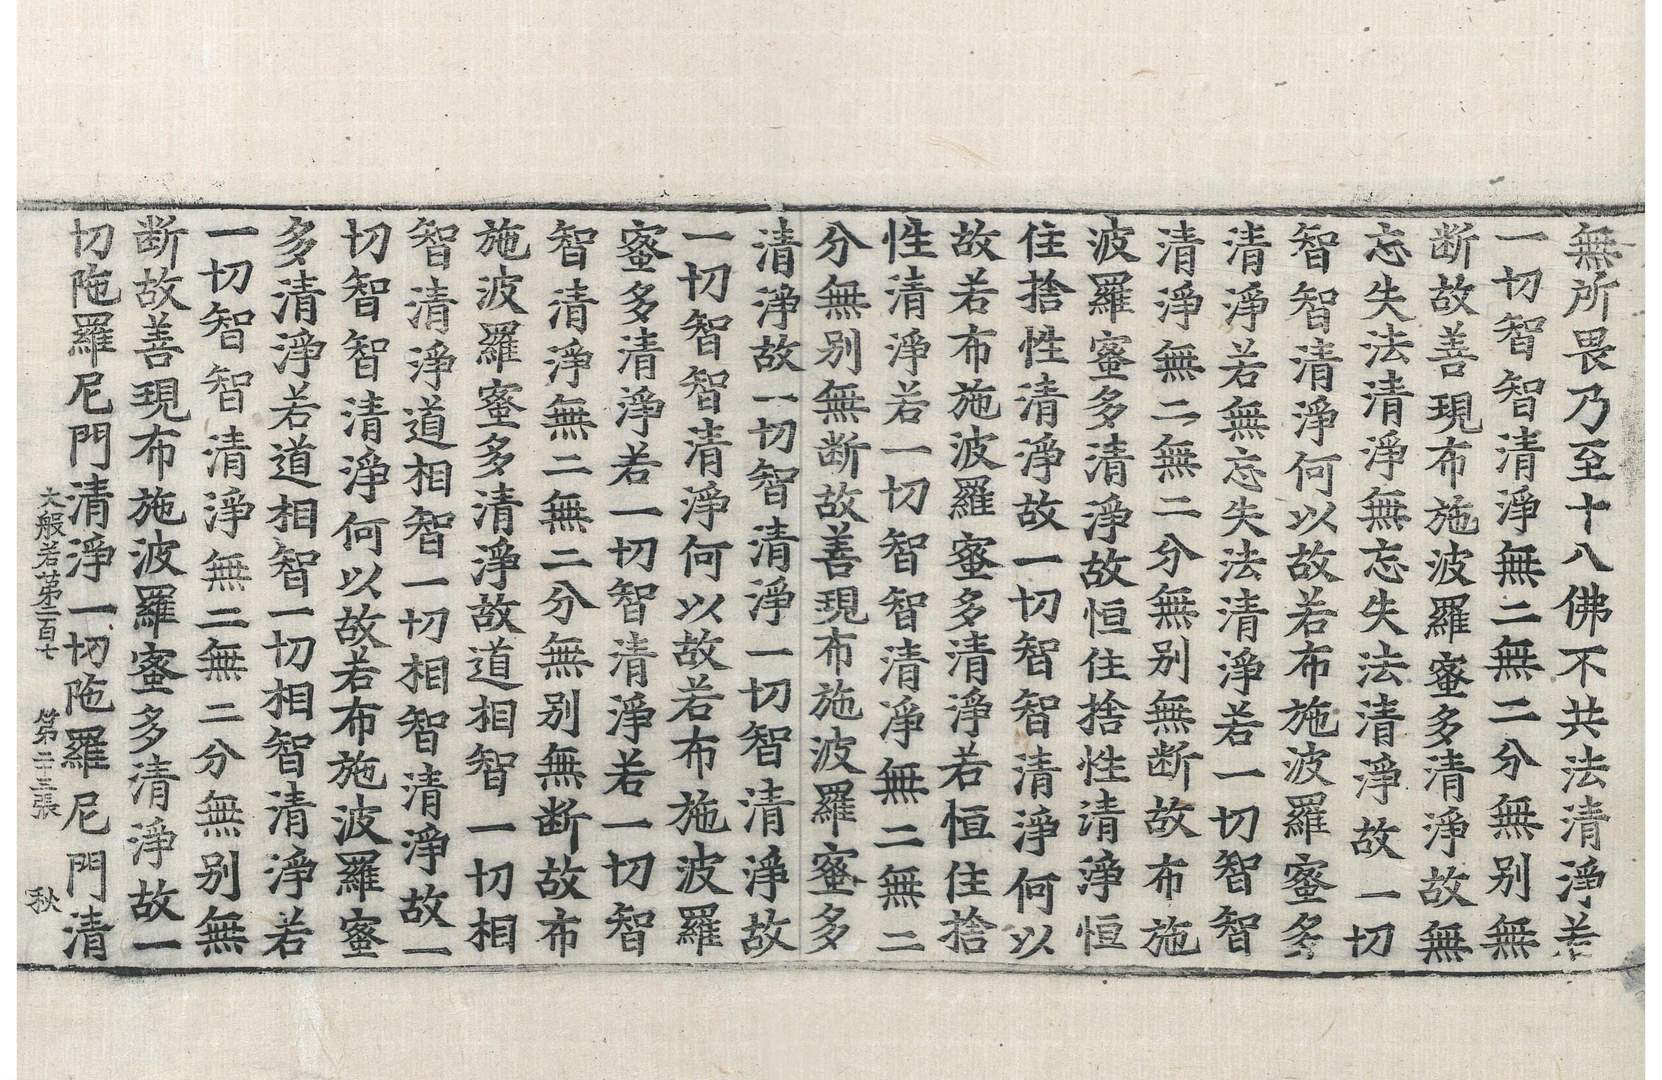 無所畏乃至十八佛不共法清淨若
一切智智清淨無二無二分無別無
断故善現布施波羅蜜多清淨故無
忘失法清淨無忘失法清淨故一切
智智清淨何以故若布施波羅蜜多
清淨若無忘失法清淨若一切智智
清淨無二無二分無別無断故布施
波羅蜜多清淨故恒住捨性清淨恒
住捨性清淨故一切智智清淨何以
故若布施波羅蜜多清淨若恒住捨
性清淨若一切智智清淨無二無二
分無別無断故善現布施波羅蜜多
清淨故一切智清淨一切智清淨故
一切智智清淨何以故若布施波羅
蜜多清淨若一切智清淨若一切智
智清淨無二無二分無別無断故布
施波羅蜜多清淨故道相智一切相
智清淨道相智一切相智清淨故一
切智智清淨何以故若布施波羅蜜
多清淨若道相智一切相智清淨若
一切智智清淨無二無二分無別無
断故善現布施波羅蜜多清淨故一
切陁羅尼門清淨一切陁羅尼門清
大般若苐二百七 第二十三張 秋